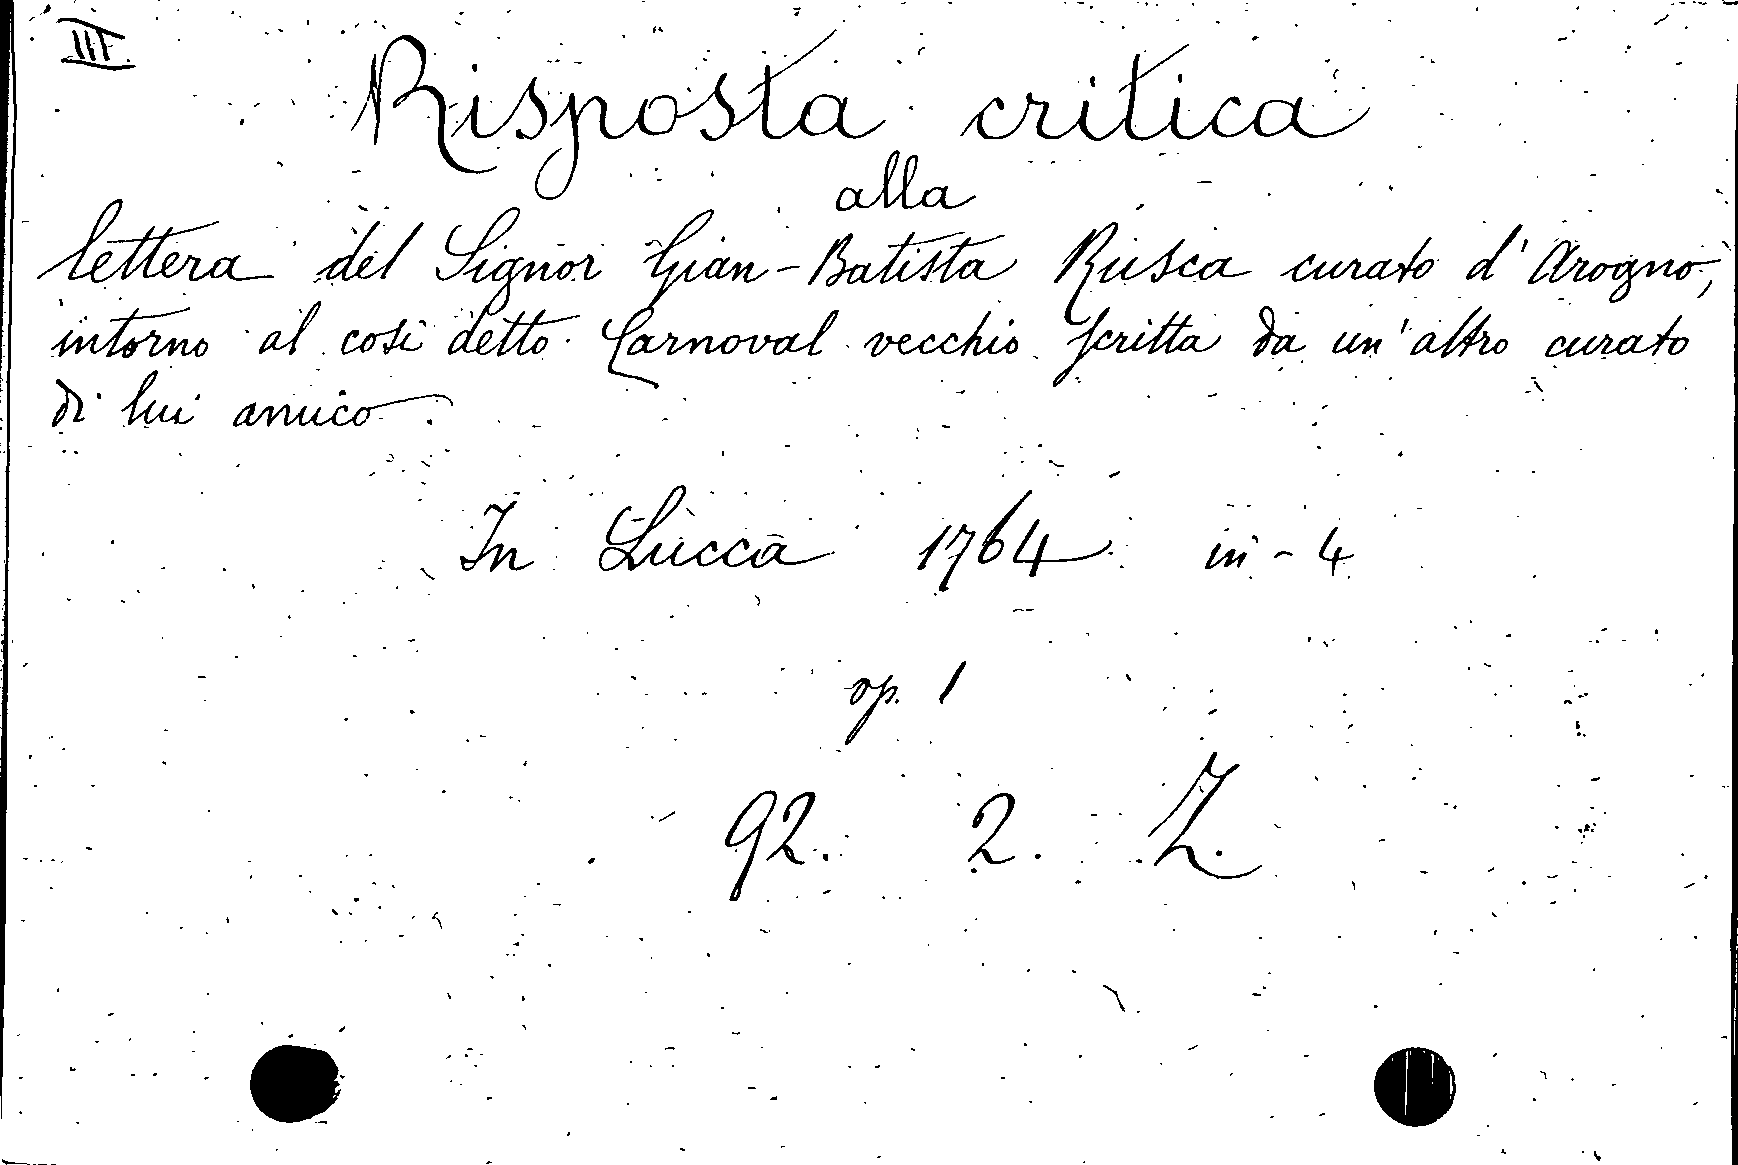 III.
Risposta critica
alla
lettera del Signor Gian-Batista Rusca curato d'Arogno,
intorno al così detto Carnoval vecchio scritta da un'altro curato
di lui amico.
In Lucca 1764 in-4
op. 1
92. 2. Z.